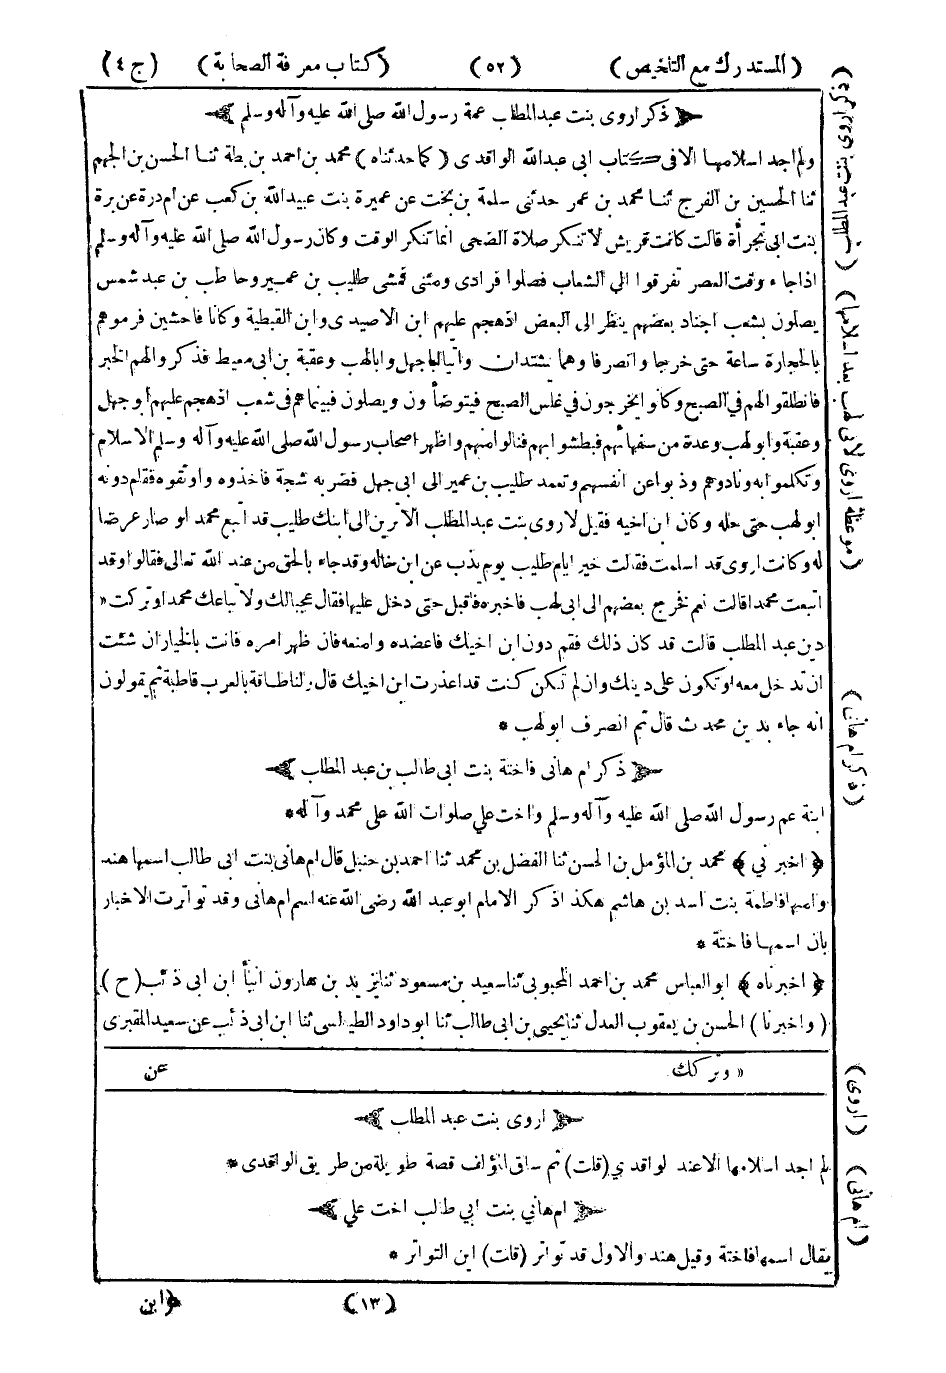 (المستدرك مع التلخيص) (٥٢) (كتاب معرفة الصحابة) (ج ٤)
ذكر اروى بنت عبد المطلب عمة رسول الله صلى الله عليه وآله وسلم
ولم اجد اسلامها الا في كتاب ابى عبدالله الواقدى (كما حدثناه) محمد بن احمد بن بطة ثنا الحسن بن الجهم
ثنا الحسين بن الفرج ثنا محمد بن عمر حدثنى سلمة بن بخت عن عميرة بنت عبيد الله بن كعب عن ام درة عن برة
بنت ابى تجرأة قالت كانت قريش لا تنكر صلاة الضحى انما تنكر الوقت وكان رسول الله صلى الله عليه وآله وسلم
اذا جاء وقت العصر تفرقوا الى الشعاب فصلوا فرادى ومثنى فمشى طليب بن عمير وحاطب بن عبد شمس
يصلون بشعب اجناد بعضهم ينظر الى البعض اذ هجم عليهم ابن الاصيدى وابن القبطية وكانا فاحشين فرموهم
بالحجارة ساعة حتى خرجا وانصرفا وهما يشتدان واتيا ابا جهل وابا لهب وعقبة بن ابى معيط فذكروا لهم الخبر
فانطلقوا لهم في الصبح وكانوا يخرجون في غلس الصبح فيتوضأون ويصلون فبينما هم في شعب اذ هجم عليهم ابو جهل
وعقبة وابو لهب وعدة من سفهائهم فبطشوا بهم فنالوا منهم واظهر اصحاب رسول الله صلى الله عليه وآله وسلم الاسلام
وتكلموا به ونادوهم وذبوا عن انفسهم وتعمد طليب بن عمير الى ابى جهل فضربه شجة فاخذوه واوثقوه فقام دونه
ابو لهب حتى حله وكان ابن اخيه فقيل لاروى بنت عبد المطلب الا ترين الى ابنك طليب قد اتبع محمدا وصار عرضا
له وكانت اروى قد اسلمت فقالت خير ايام طليب يوم يذب عن ابن خاله وقد جاء بالحق من عند الله تعالى فقالوا وقد
اتبعت محمدا قالت نعم فخرج بعضهم الى ابى لهب فاخبره فاقبل حتى دخل عليها فقال عجبا لك ولا تباعك محمدا وتركت «
دين عبد المطلب قالت قد كان ذلك فقم دون ابن اخيك فاعضده وامنعه فان ظهر امره فانت بالخيار ان شئت
ان تدخل معه او تكون على دينك وان لم تكن كنت قد اعذرت ابن اخيك قال ولنا طاقة بالعرب قاطبة ثم يقولون
انه جاء بدين محدث قال ثم انصرف ابو لهب *
ذكر ام هانى فاختة بنت ابى طالب بن عبد المطلب
ابنة عم رسول الله صلى الله عليه وآله وسلم واخت علي صلوات الله على محمد وآله *
﴿ اخبرني ﴾ محمد بن المؤمل بن الحسن ثنا الفضل بن محمد ثنا احمد بن حنبل قال ام هانى بنت ابى طالب اسمها هند
وامها فاطمة بنت اسد بن هاشم هكذا ذكر الامام ابو عبد الله رضى الله عنه اسم ام هانى وقد تواترت الاخبار
بان اسمها فاختة *
﴿ اخبرناه ﴾ ابو العباس محمد بن احمد المحبوبى ثنا سعيد بن مسعود ثنا يزيد بن هارون انبأ ابن ابى ذئب (ح)
(واخبرنا) الحسن بن يعقوب العدل ثنا يحيى بن ابى طالب ثنا ابو داود الطيالسى ثنا ابن ابى ذئب عن سعيد المقبرى
عن
« وتركك
اروى بنت عبد المطلب
لم اجد اسلامها الا عند لواقدي (قلت) ثم ساق المؤلف قصة طويلة من طريق الواقدى *
ام هاني بنت ابي طالب اخت علي
يقال اسمها فاختة وقيل هند والاول قد تواتر (قلت) اين التواتر *
(١٣) ﴿ ابن
(موعظة اروى لابى لهب بعد اسلامها)
(ذكر ام هانى)
(اروى)
(ام هانى)